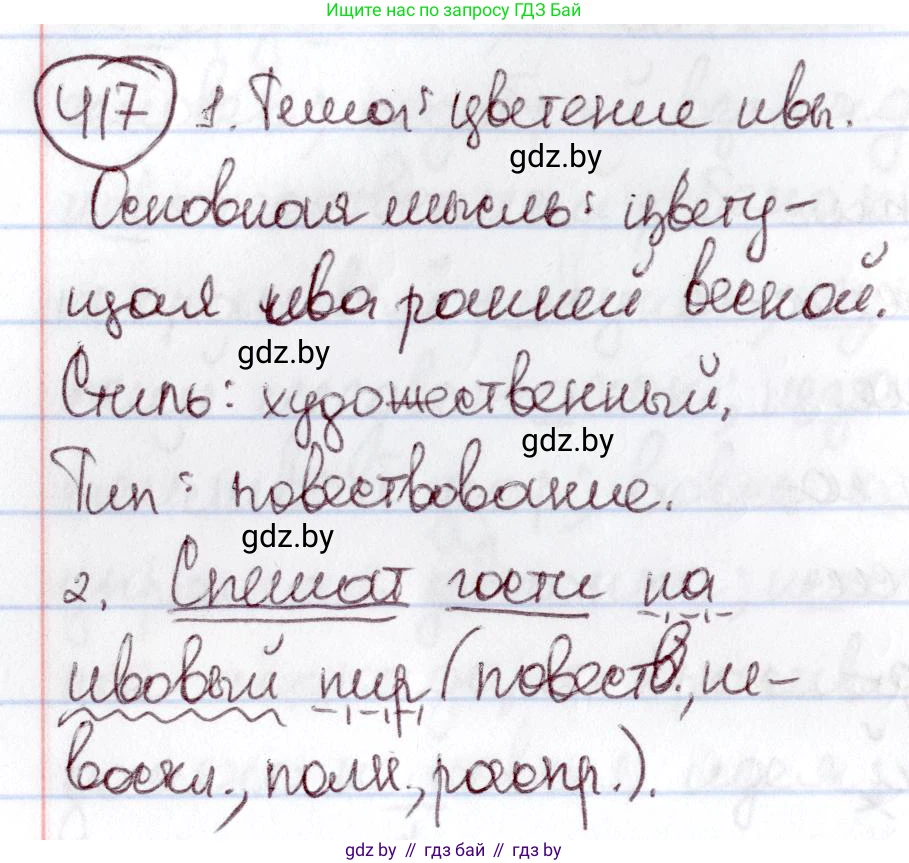 Ищите нас по запросу ГДЗ Бай
417 1. Тема: цветение ивы.
gdz.by
Основная мысль: цвету-
щая ива ранней весной.
gdz.by
Стиль: художественный,
gdz.by
Тип: повествование.
gdz.by
2. Спешат гости на
ивовый пир (повеств., не-
воскл., полн., распр.).
gdz.by // гдз бай // gdz by